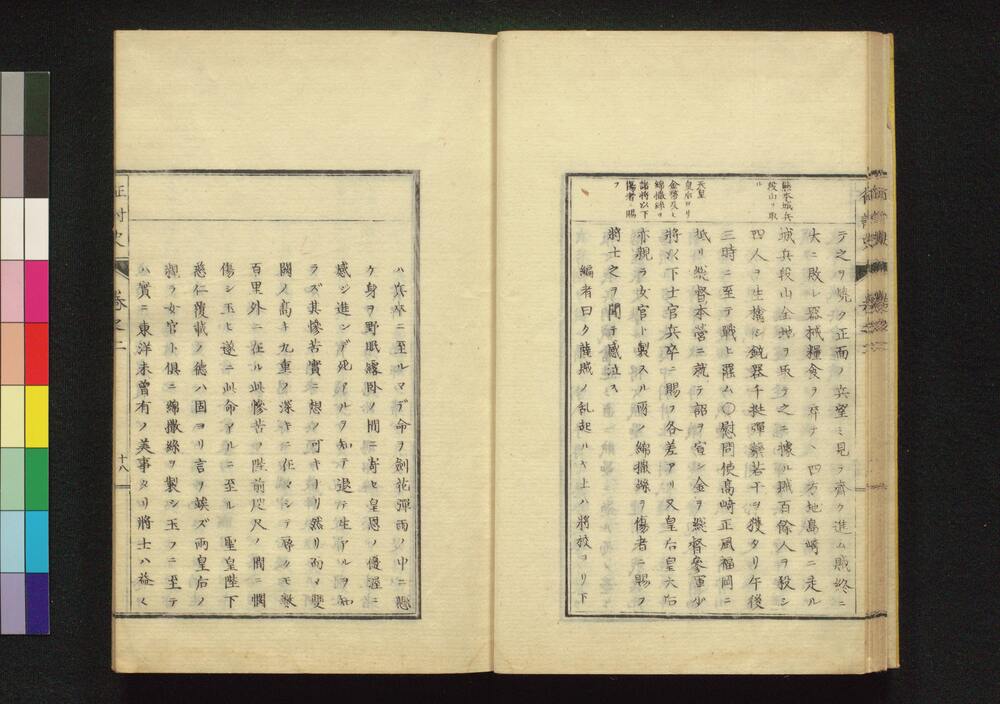 熊本城兵
段山ヲ取
ル
天皇
皇后ヨリ
金帑及ヒ
綿撒絲ヲ
諸将以下
傷者ニ賜
フ
テ之ヲ焼ク正面ノ兵望ミ見テ齊ク進ム賊終ニ
大ニ敗レ器械糧食ヲ棄テヽ四方地島崎ニ走ル
城兵段山全地ヲ取テ之ニ據ル賊百餘人ヲ殺シ
四人ヲ生擒シ銃器千挺彈藥若干ヲ獲タリ午後
三時ニ至テ戰ヒ罷ム〇慰問使高崎正風福岡ニ
抵リ総督本營ニ就テ詔ヲ宣シ金ヲ総督參軍少
將以下士官兵卒ニ賜フ各差アリ又皇后皇太后
亦親ラ女官ト製スル所ノ綿撒絲ヲ傷者ニ賜フ
將士之ヲ聞テ感泣ス
編者曰ク薩賊ノ乱起ルヤ上ハ將校ヨリ下
ハ兵卒ニ至ルマデ命ヲ劍花彈雨ノ中ニ懸
ケ身ヲ野眠露臥ノ間ニ寄セ皇恩ノ優渥ニ
感シ進ンデ死アルヲ知テ退テ生アルヲ知
ラズ其慘苦實ニ想フ可キナリ然リ而〆雙
闕ノ高キ九重ノ深キニ在マシテ尋クモ數
百里外ニ在ル此慘苦ヲ陛前咫尺ノ間ニ憫
傷シ玉ヒ遂ニ此命アルニ至ル聖皇陛下
慈仁覆載ノ徳ハ固ヨリ言ヲ竢ズ兩皇后ノ
親ラ女官ト俱ニ綿撒絲ヲ製シ玉フニ至テ
ハ實ニ東洋未曾有ノ美事タリ將士ハ益〻
征討史
卷之二
十八